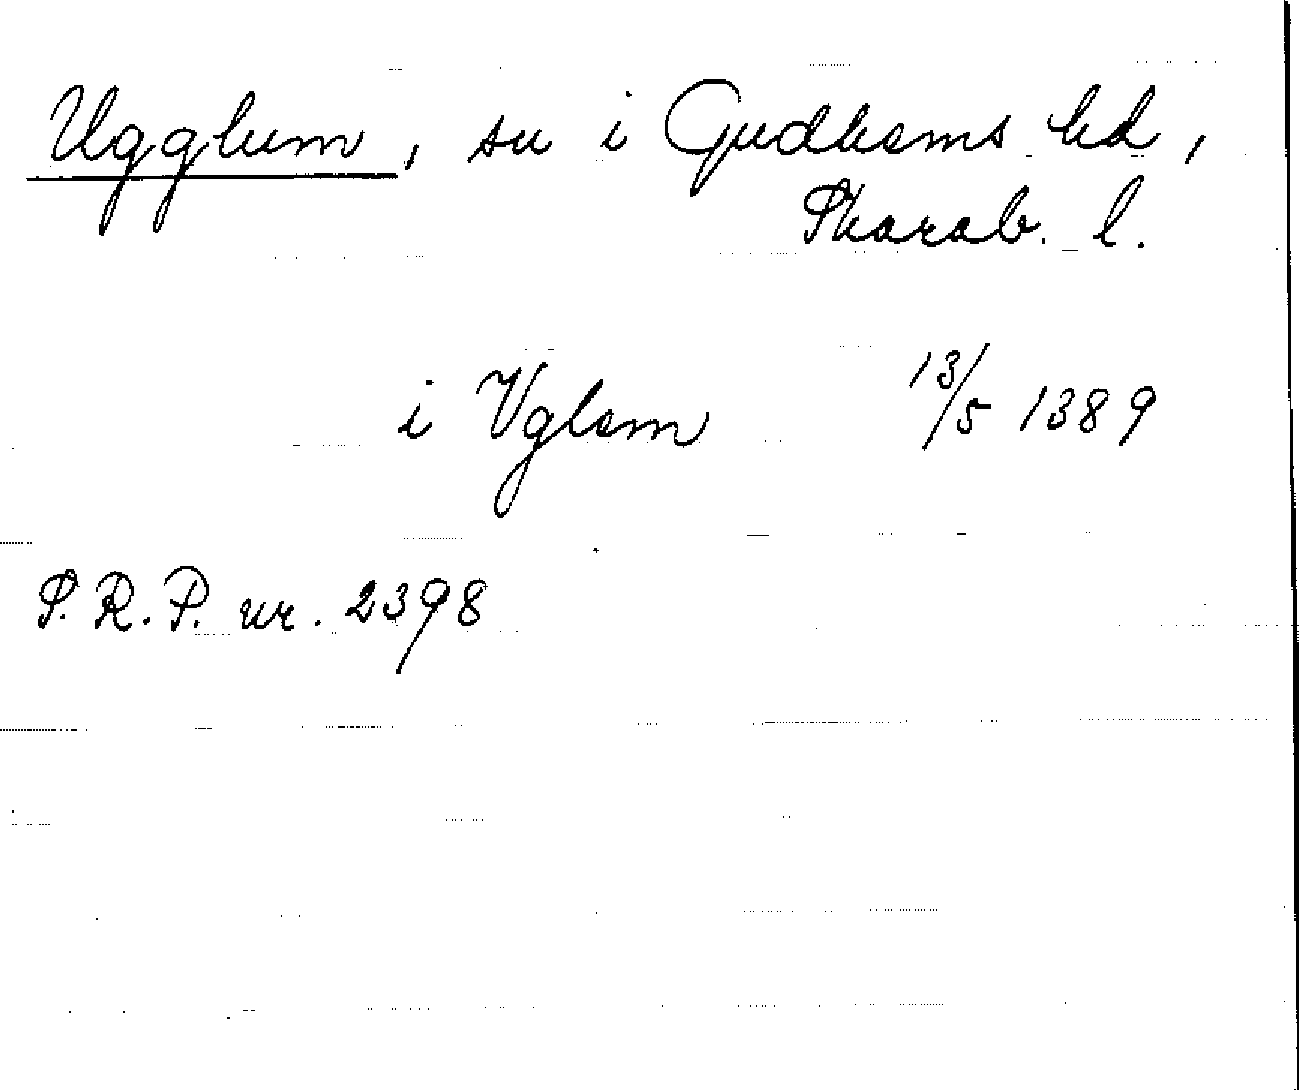 Ugglum, sn i Gudhems hd,
Skarab. l.
i Vglem 13/5 1389
S.R.P. nr. 2398